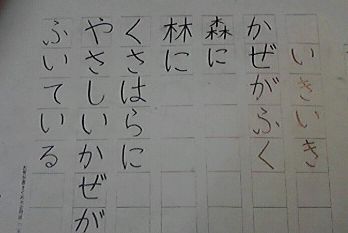 いきいき
かぜがふく
森に
林に
くさはらに
やさしいかぜが
ふいている